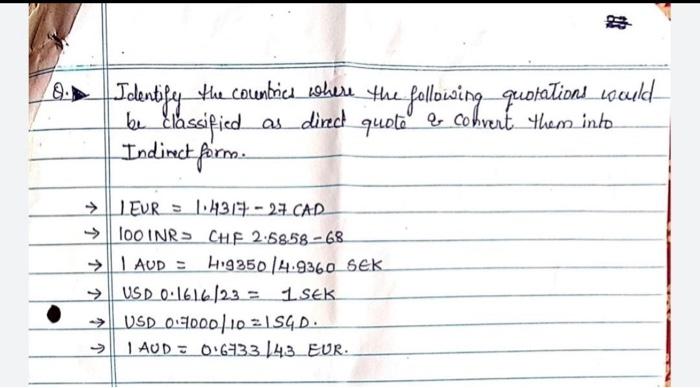 Q.▶ Identify the countries where the following quotations would
be classified as direct quote & convert them into
Indirect form.
→ 1 EUR = 1.4317 - 27 CAD
→ 100 INR = CHF 2.5858 - 68
→ 1 AUD = 4.9350 / 4.9360 SEK
→ USD 0.1616/23 = 1 SEK
→ USD 0.7000/10 = 1 SGD.
→ 1 AUD = 0.6733 / 43 EUR.